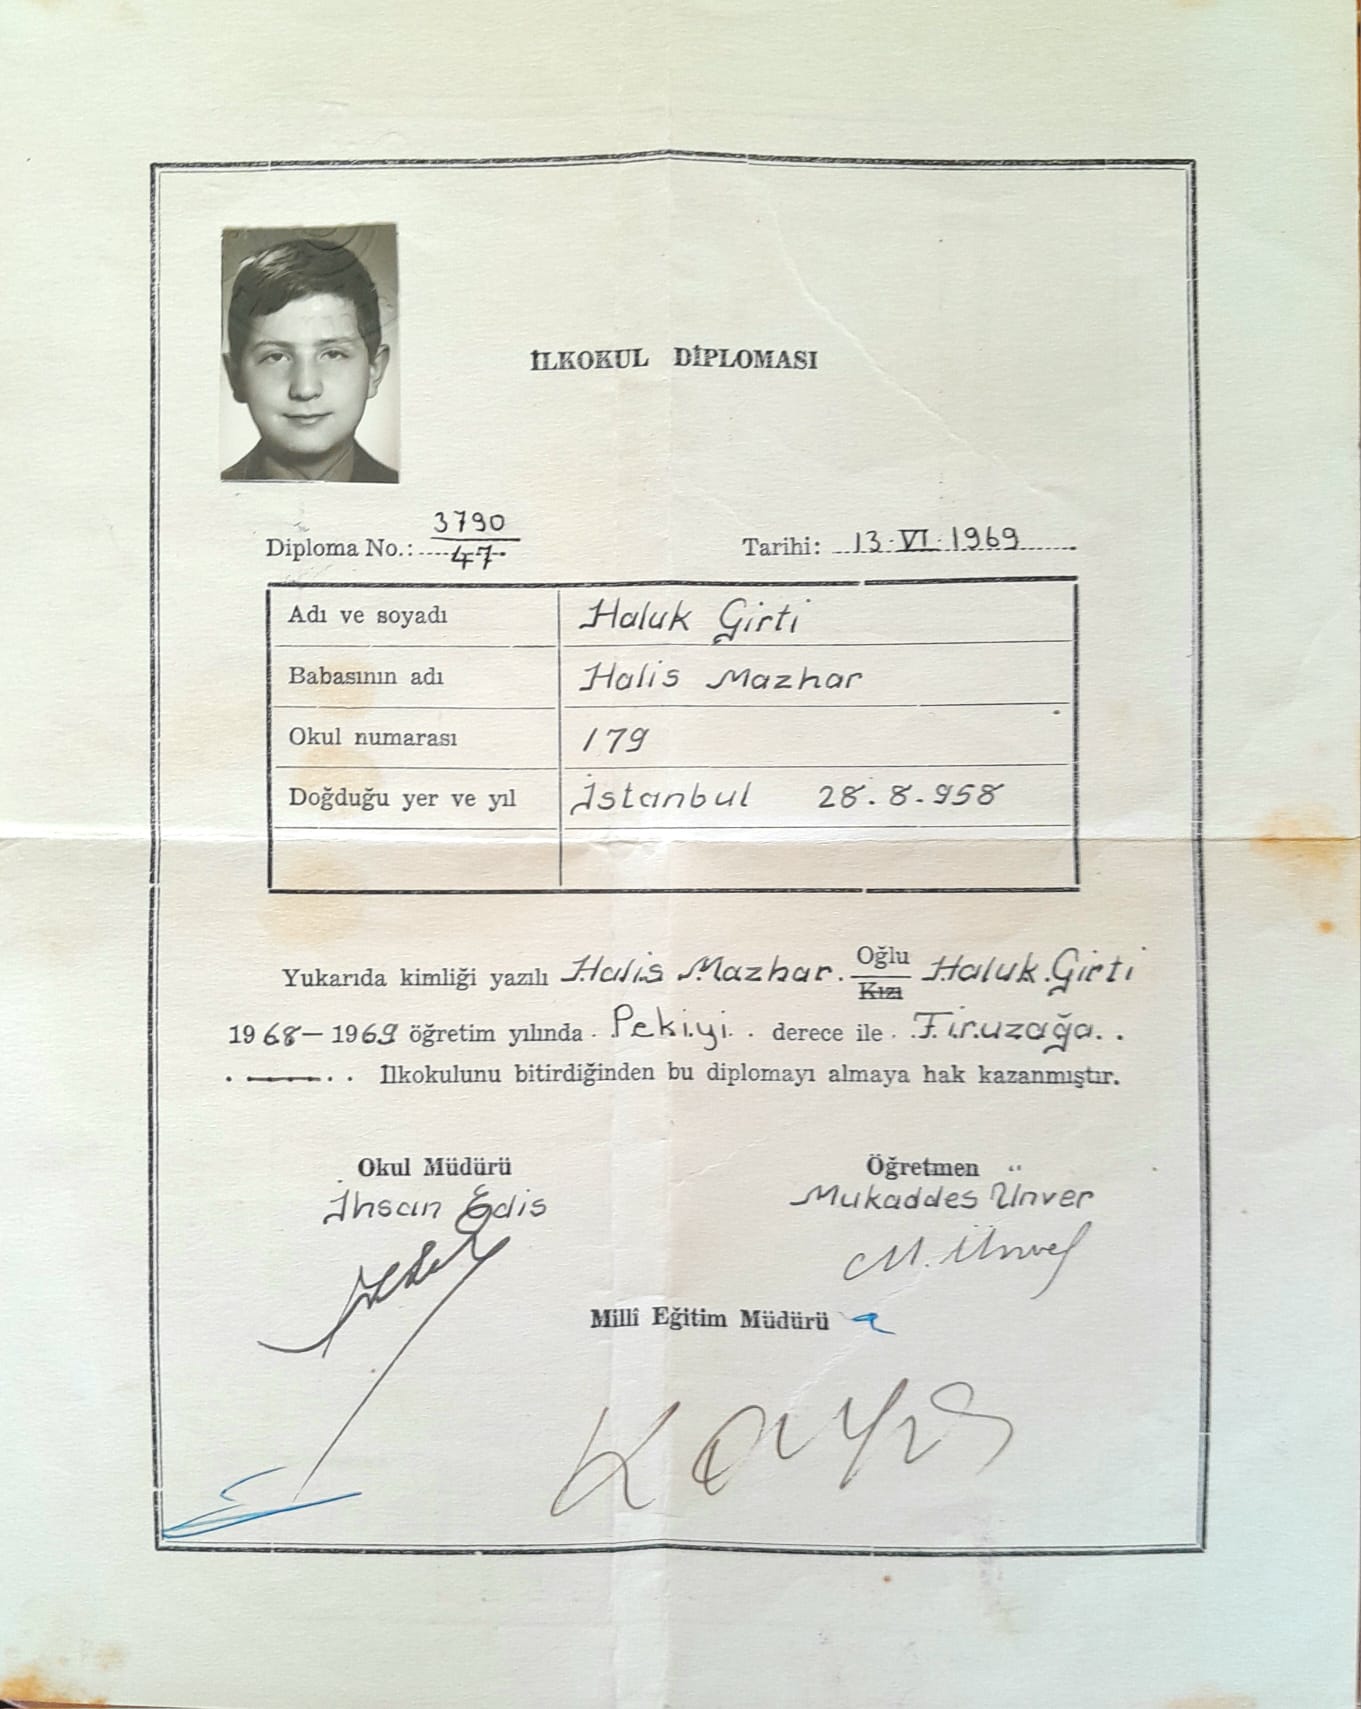 İLKOKUL DİPLOMASI
Diploma No.: 3790/47 Tarihi: 13.VI.1969
Adı ve soyadı Haluk Girti
Babasının adı Halis Mazhar
Okul numarası 179
Doğduğu yer ve yıl İstanbul 28.8.958
Yukarıda kimliği yazılı Halis Mazhar. Oğlu Kızı Haluk Girti
1968-1969 öğretim yılında Pekiyi derece ile Firuzağa
İlkokulunu bitirdiğinden bu diplomayı almaya hak kazanmıştır.
Okul Müdürü Öğretmen
İhsan Edis Mukaddes Ünver
M. Ünver
Millî Eğitim Müdürü